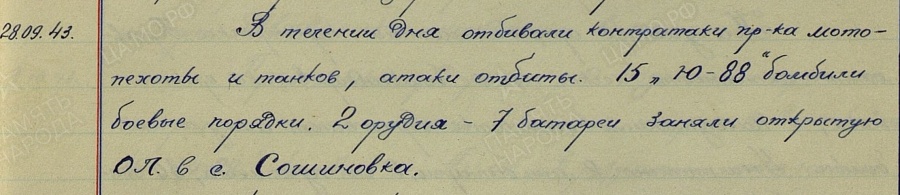 28.09.43. В течении дня отбивали контратаки пр-ка мото-
пехоты и танков, атаки отбиты. 15 „Ю-88" бомбили
боевые порядки. 2 орудия - 7 батареи заняли открытую
ОП. в с. Сошиновка.